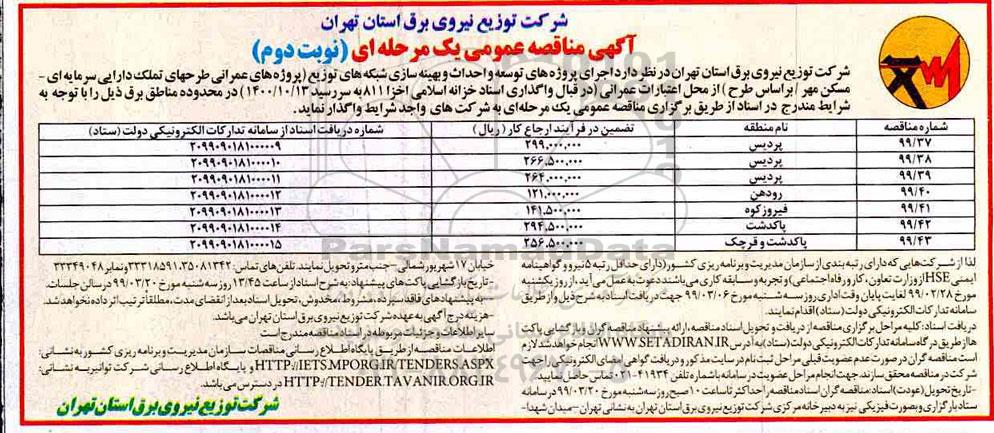 شرکت توزیع نیروی برق استان تهران
آگهی مناقصه عمومی یک مرحله ای (نوبت دوم)
شرکت توزیع نیروی برق استان تهران در نظر دارد اجرای پروژه های توسعه و احداث و بهینه سازی شبکه های توزیع (پروژه های عمرانی طرحهای تملک دارایی سرمایه ای -
مسکن مهر / براساس طرح) از محل اعتبارات عمرانی (در قبال واگذاری اسناد خزانه اسلامی اخزا ۸۱۱ به سررسید ۱۴۰۰/۱۰/۱۳) در محدوده مناطق برق ذیل را با توجه به
شرایط مندرج در اسناد از طریق برگزاری مناقصه عمومی یک مرحله ای به شرکت های واجد شرایط واگذار نماید.
شماره مناقصه نام منطقه تضمین در فرآیند ارجاع کار (ریال) شماره دریافت اسناد از سامانه تدارکات الکترونیکی دولت (ستاد)
۹۹/۳۷ پردیس ۲۹۹,۰۰۰,۰۰۰ ۲۰۹۹۰۹۰۱۸۱۰۰۰۰۰۹
۹۹/۳۸ پردیس ۲۶۶,۵۰۰,۰۰۰ ۲۰۹۹۰۹۰۱۸۱۰۰۰۰۱۰
۹۹/۳۹ پردیس ۲۶۴,۰۰۰,۰۰۰ ۲۰۹۹۰۹۰۱۸۱۰۰۰۰۱۱
۹۹/۴۰ رودهن ۱۲۱,۰۰۰,۰۰۰ ۲۰۹۹۰۹۰۱۸۱۰۰۰۰۱۲
۹۹/۴۱ فیروزکوه ۱۴۱,۵۰۰,۰۰۰ ۲۰۹۹۰۹۰۱۸۱۰۰۰۰۱۳
۹۹/۴۲ پاکدشت ۲۹۴,۵۰۰,۰۰۰ ۲۰۹۹۰۹۰۱۸۱۰۰۰۰۱۴
۹۹/۴۳ پاکدشت و قرچک ۲۵۶,۵۰۰,۰۰۰ ۲۰۹۹۰۹۰۱۸۱۰۰۰۰۱۵
ParsNamadData
لذا از شرکت هایی که دارای رتبه بندی از سازمان مدیریت و برنامه ریزی کشور (دارای حداقل رتبه ۵ نیرو و گواهینامه
ایمنی HSE از وزارت تعاون، کار و رفاه اجتماعی) و تجربه و سابقه کاری می باشند دعوت به عمل می آید، از روز یکشنبه
مورخ ۹۹/۰۲/۲۸ لغایت پایان وقت اداری روز سه شنبه مورخ ۹۹/۰۳/۰۶ جهت دریافت اسناد به شرح ذیل و از طریق
سامانه تدارکات الکترونیکی دولت (ستاد) اقدام نمایند.
دریافت اسناد: کلیه مراحل برگزاری مناقصه از دریافت و تحویل اسناد مناقصه، ارائه پیشنهاد مناقصه گران و بازگشایی پاکت
ها از طریق درگاه سامانه تدارکات الکترونیکی دولت (ستاد) به آدرس WWW.SETADIRAN.IR انجام خواهد شد لازم
است مناقصه گران در صورت عدم عضویت قبلی مراحل ثبت نام در سایت مذکور و دریافت گواهی امضای الکترونیکی را جهت
شرکت در مناقصه محقق سازند. جهت انجام مراحل عضویت در سامانه با شماره تلفن ۴۱۹۳۴-۰۲۱ تماس حاصل نمایید.
-تاریخ تحویل (عودت) اسناد مناقصه: مناقصه گران اسناد مناقصه را حداکثر تا ساعت ۱۰ صبح روز سه شنبه مورخ ۹۹/۰۳/۲۰ در سامانه
ستاد بارگزاری و بصورت فیزیکی نیز به دبیرخانه مرکزی شرکت توزیع نیروی برق استان تهران به نشانی تهران-میدان شهدا-
خیابان ۱۷ شهریور شمالی- جنب مترو تحویل نمایند. تلفن های تماس: ۳۳۳۱۸۵۹۱،۳۵۰۸۱۳۴۲ و نمابر ۳۳۳۴۹۰۴۸
-تاریخ بازگشایی پاکت های پیشنهاد: به شرح اسناد از ساعت ۱۳/۴۵ روز سه شنبه مورخ ۹۹/۰۳/۲۰ در سالن جلسات.
-به پیشنهادهای فاقد سپرده، مشروط، مخدوش، تحویل اسناد بعد از انقضای مدت، مطلقا ترتیب اثر داده نخواهد شد.
-هزینه درج آگهی به عهده شرکت توزیع نیروی برق استان تهران می باشد.
سایر اطلاعات و جزئیات مربوطه در اسناد مناقصه مندرج است
اطلاعات مناقصه از طریق پایگاه اطلاع رسانی مناقصات سازمان مدیریت و برنامه ریزی کشور به نشانی:
HTTP://IETS.MPORG.IR/TENDERS.ASPX و پایگاه اطلاع رسانی شرکت توانیر به نشانی:
HTTP://TENDER.TAVANIR.ORG.IR در دسترس می باشد.
شرکت توزیع نیروی برق استان تهران